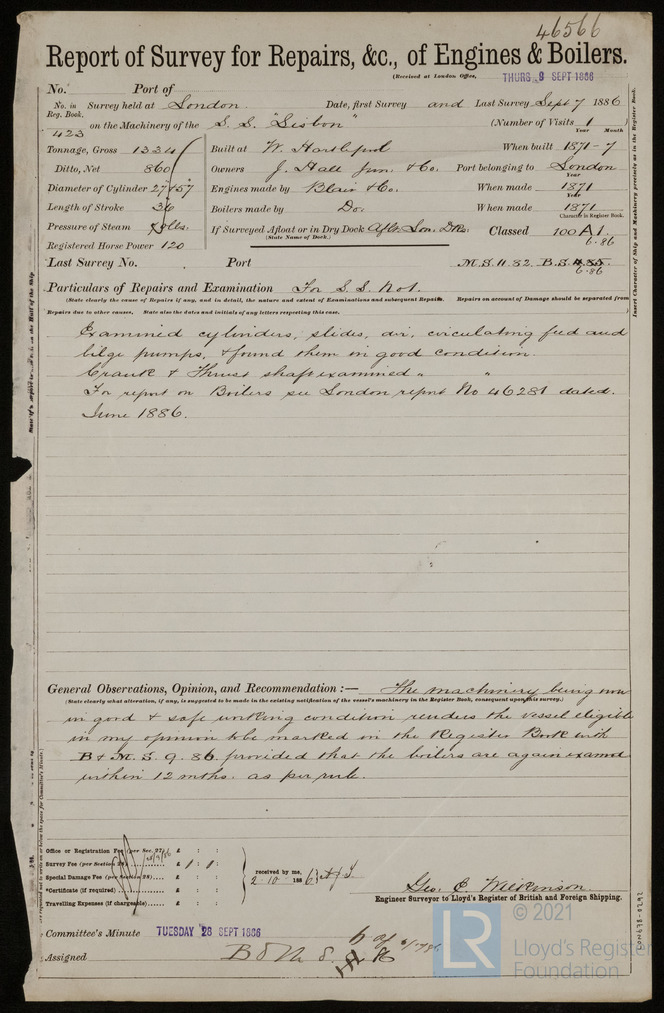 46566
Report of Survey for Repairs, &c., of Engines & Boilers.
(Received at London Office, THURS 9 SEPT 1886
No. Port of
No. in Reg. Book. Survey held at London Date, first Survey and Last Survey Sept 7 1886
423 on the Machinery of the S.S. "Lisbon" (Number of Visits 1
Tonnage, Gross 1334 Built at W. Hartlepool When built 1871-7
Year Month
Ditto, Net 860 Owners J. Hall Jun. & Co. Port belonging to London
Diameter of Cylinder 27 & 57 Engines made by Blair & Co. When made 1871
Year
Length of Stroke 36 Boilers made by Do. When made 1871
Year
Pressure of Steam lbs. If Surveyed Afloat or in Dry Dock Aflt. Lon. Dks. Classed 100 A1.
(State Name of Dock.)
Character in Register Book.
6.86
Registered Horse Power 120
Last Survey No. Port M.S. 11.82. B.S. 4.85
6.86
Particulars of Repairs and Examination For S.S. No1.
(State clearly the cause of Repairs if any, and in detail, the nature and extent of Examinations and subsequent Repairs. Repairs on account of Damage should be separated from
Repairs due to other causes. State also the dates and initials of any letters respecting this case.
Examined cylinders, slides, air, circulating feed and
bilge pumps, & found them in good condition.
Crank & Thrust shaft examined " "
For report on Boilers see London report No 46281 dated.
June 1886.
General Observations, Opinion, and Recommendation :— The machinery being now
(State clearly what alteration, if any, is suggested to be made in the existing notification of the vessel's machinery in the Register Book, consequent upon this survey.)
in good & safe working condition renders the vessel eligible
in my opinion to be marked on the Register Book with
B & M. S. 9. 86. provided that the boilers are again examd
within 12 mths. as per rule.
Office or Registration Fee (per Sec. 27) £ : :
Survey Fee (per Section 28) £ 1 : 1 :
Special Damage Fee (per Section 28) £ : :
*Certificate (if required) £ : :
Travelling Expenses (if chargeable) £ : :
received by me,
2-10- 1886
Geo. C. Wilkinson.
Engineer Surveyor to Lloyd's Register of British and Foreign Shipping.
Committee's Minute TUESDAY 28 SEPT 1886
Assigned B & M S.
Insert Character of Ship and Machinery precisely as in the Register Book.
LON678-0292
© 2021
LR
Lloyd's Register
Foundation